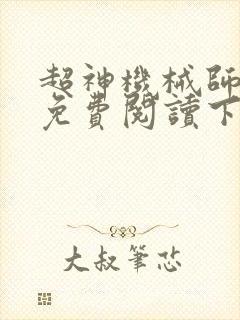 超神機械師
免費閱讀下
大叔筆芯